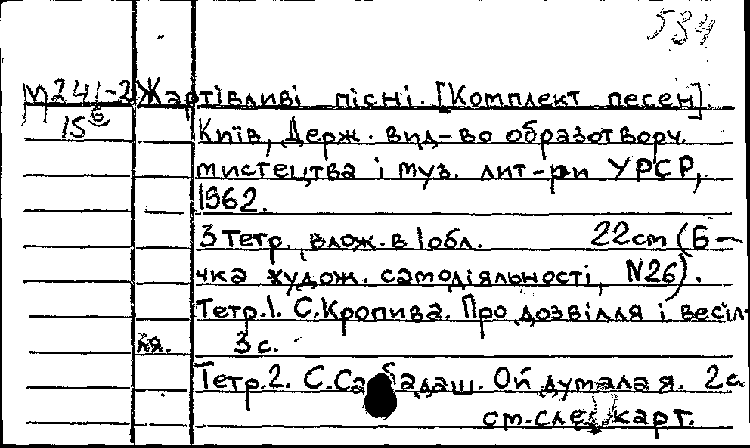 534
М241-2 Жартівливі пісні. [Комплект песен].
15⁶ Київ, Держ. вид-во образотворч.
мистецтва і муз. лит-ри УРСР,
1962.
3 тетр. влож. в 1 обл. 22 cm (Б-
чка худож. самодіяльності, N26).
Тетр.1. С.Кропива. Про дозвілля і весіл-
ля. 3 с.
Тетр.2. С.Сабадаш. Ой думала я. 2 с.
см. след. карт.